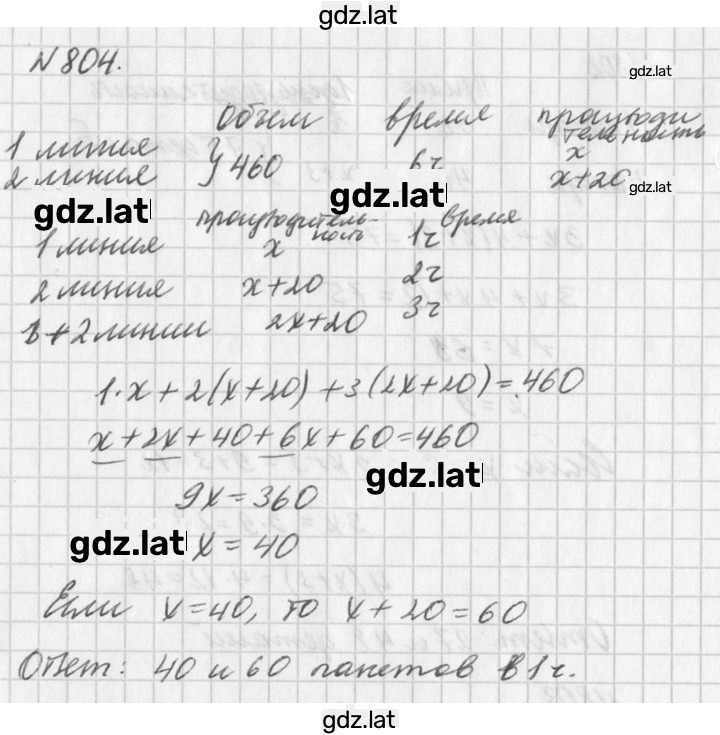 gdz.lat
N 804.
gdz.lat
Объем время производительность
1 линия } 460 6ч x
2 линия x+20
gdz.lat
gdz.lat gdz.lat
производительность время
1 линия x 1ч
2 линия x+20 2ч
1+2 линии 2x+20 3ч
1·x + 2(x+20) + 3(2x+20) = 460
x + 2x + 40 + 6x + 60 = 460
gdz.lat
9x = 360
gdz.lat
x = 40
Если x=40, то x+20=60
Ответ: 40 и 60 пакетов в 1ч.
gdz.lat